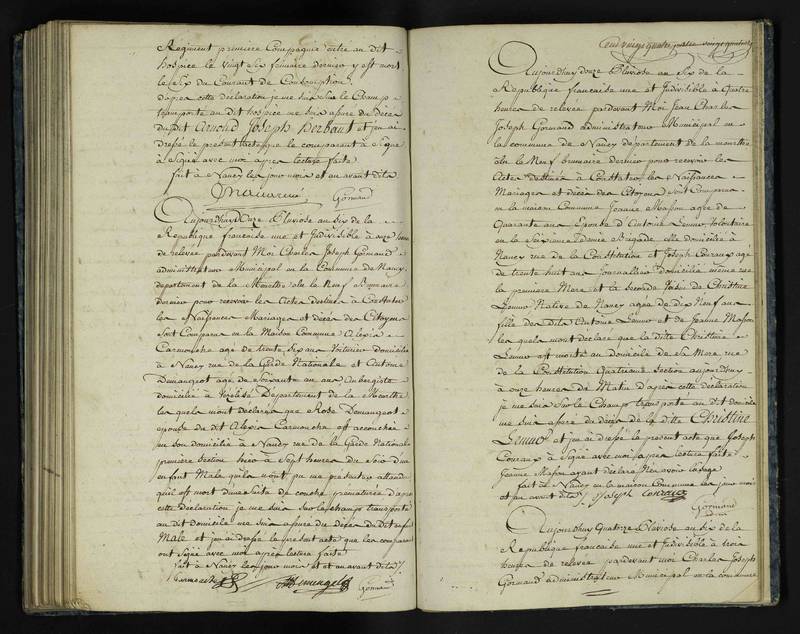 Régiment première Compagnie entré au dit
hospice le vingt Six frimaire dernier y est mort
le Six du Courant de Consomption
d'après cette déclaration je me suis Sur le Champ
transporté au dit hospice me suis assuré du décès
du dit Arnold Joseph Herbaut et j'en ai
dressé le présent acte que le comparant a Signé
avec moi après lecture faite
fait à Nancy les jour mois et an avant dits
Gormand
Aujourdhuy Onze Pluviose an Six de la
République francaise une et Indivisible à onze heures
de relevée pardevant Moi Charles Joseph Gormand
administrateur Municipal en la Commune de Nancy
département de la Meurthe élu le Neuf Brumaire
dernier pour recevoir les Actes destinés à Constater
les Naissances Mariages et décès des Citoyens
Sont Comparus en la Maison Commune Alexis
Carmouche agé de trente Six ans Voiturier domicilié
à Nancy rue de la Garde Nationale et Antoine
Demangeot agé de Soixante un ans Aubergiste
domicilié à Vezelise Département de la Meurthe
les quels m'ont déclaré que Rose Demangeot
épouse du dit Alexis Carmouche est accouchée
en son domicilie à Nancy rue de la Garde Nationale
première Section hier à Sept heures du Soir d'un
enfant Male qu'ils n'ont pu me présenter attendu
qu'il est mort d'une Suite de couche prématurée d'après
cette déclaration je me suis Sur le champ transporté
au dit domicile me suis assuré du décès du dit enfant
Male et j'en ai dressé le présent acte que les comparants
ont Signé avec moi après lecture faite
fait à Nancy les jour mois et an avant dits
Carmouche Demangeot Gormand
Cent vingt quatre
Aujourdhuy douze Pluviose an Six de la
République francaise une et Indivisible à Quatre
heures de relevée pardevant Moi Jean Charles
Joseph Gormand administrateur Municipal en
la commune de Nancy département de la meurthe
élu le Neuf brumaire dernier pour recevoir les
Actes destinés à Constater les Naissances
Mariages et décès des Citoyens Sont Comparus
en la maison Commune Jeanne Masson agée de
Quarante ans Epouse d'Antoine Lenno Volontaire
en la Sixieme demie Brigade elle domiciliée à
Nancy rue de la Constitution et Joseph Couraux agé
de trente huit ans Journallier domicilié même rue
la premiere Mere et la Seconde Voisin de Christine
Lenno Native de Nancy agée de dix Neuf ans
fille des dits Antoine Lenno et de Jeanne Masson
les quels mont déclaré que la ditte Christine
Lenno est morte au domicile de sa Mere rue
de la Constitution Quatrieme Section aujourdhuy
à onze heures de Matin d'après cette déclaration
je me suis Sur le Champ transporté au dit domicile
me suis assuré du décès de la ditte Christine
Lenno et j'en ai dressé le présent acte que Joseph
Couraux a Signé avec moi après lecture faite
Jeanne Masson ayant déclaré N'en avoir l'usage
fait à Nancy en la maison Commune les jour mois
et an avant dits Joseph Couraux
Gormand
Aujourdhuy Quatorze Pluviose an Six de la
République francaise une et Indivisible à trois
heures de relevée pardevant moi Charles Joseph
Gormand administrateur Municipal en la commune